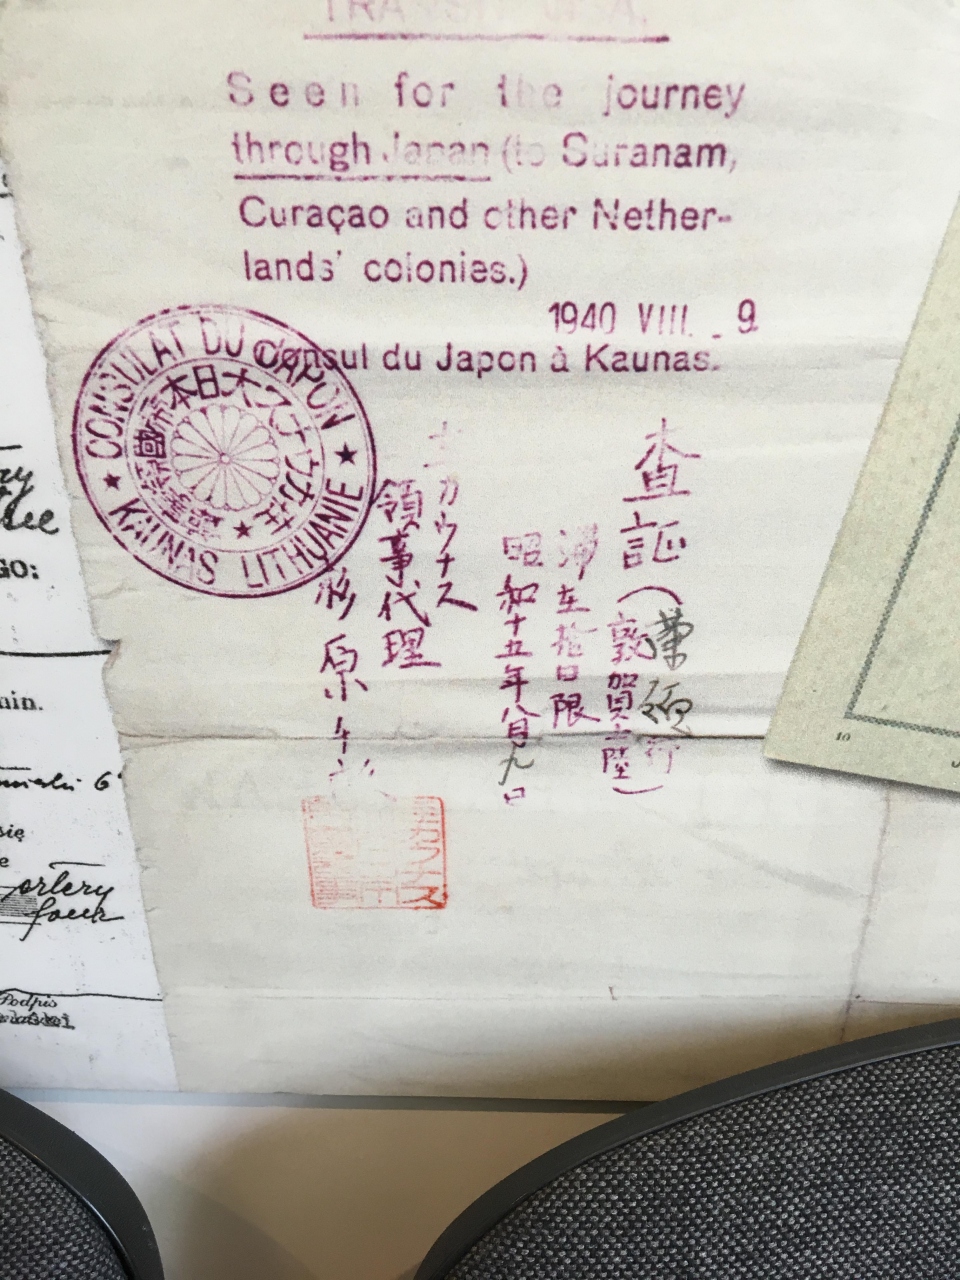 TRANSIT
Seen for the journey
through Japan (to Suranam,
Curaçao and other Nether-
lands' colonies.)
1940 VIII. - 9
Consul du Japon à Kaunas.
CONSULAT DU JAPON
KAUNAS LITHUANIE
査証(蘭領行
敦賀上陸)
滞在拾日限
昭和十五年八月九日
カウナス
領事代理
杉原千
GO:
min.
się
ortery
four
Podpis
10